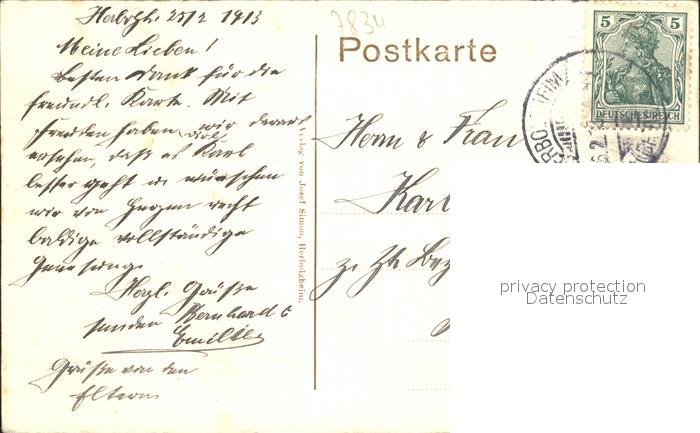 Herbolzh. 25/2 1913
Meine Lieben!
Besten Dank für die
freundl. Karte. Mit
Freuden haben wir daraus
ersehen, daß es Karl
besser geht u. wünschen
wir von Herzen recht
baldige vollständige
Genesung.
Herzl. Grüße
senden Bernhard &
Emilie
Grüße von den
Eltern
Verlag von Josef Simon, Herbolzheim.
7834
Postkarte
5 5
DEUTSCHES REICH
Herrn & Frau
Karl
z. Zt.
privacy protection
Datenschutz